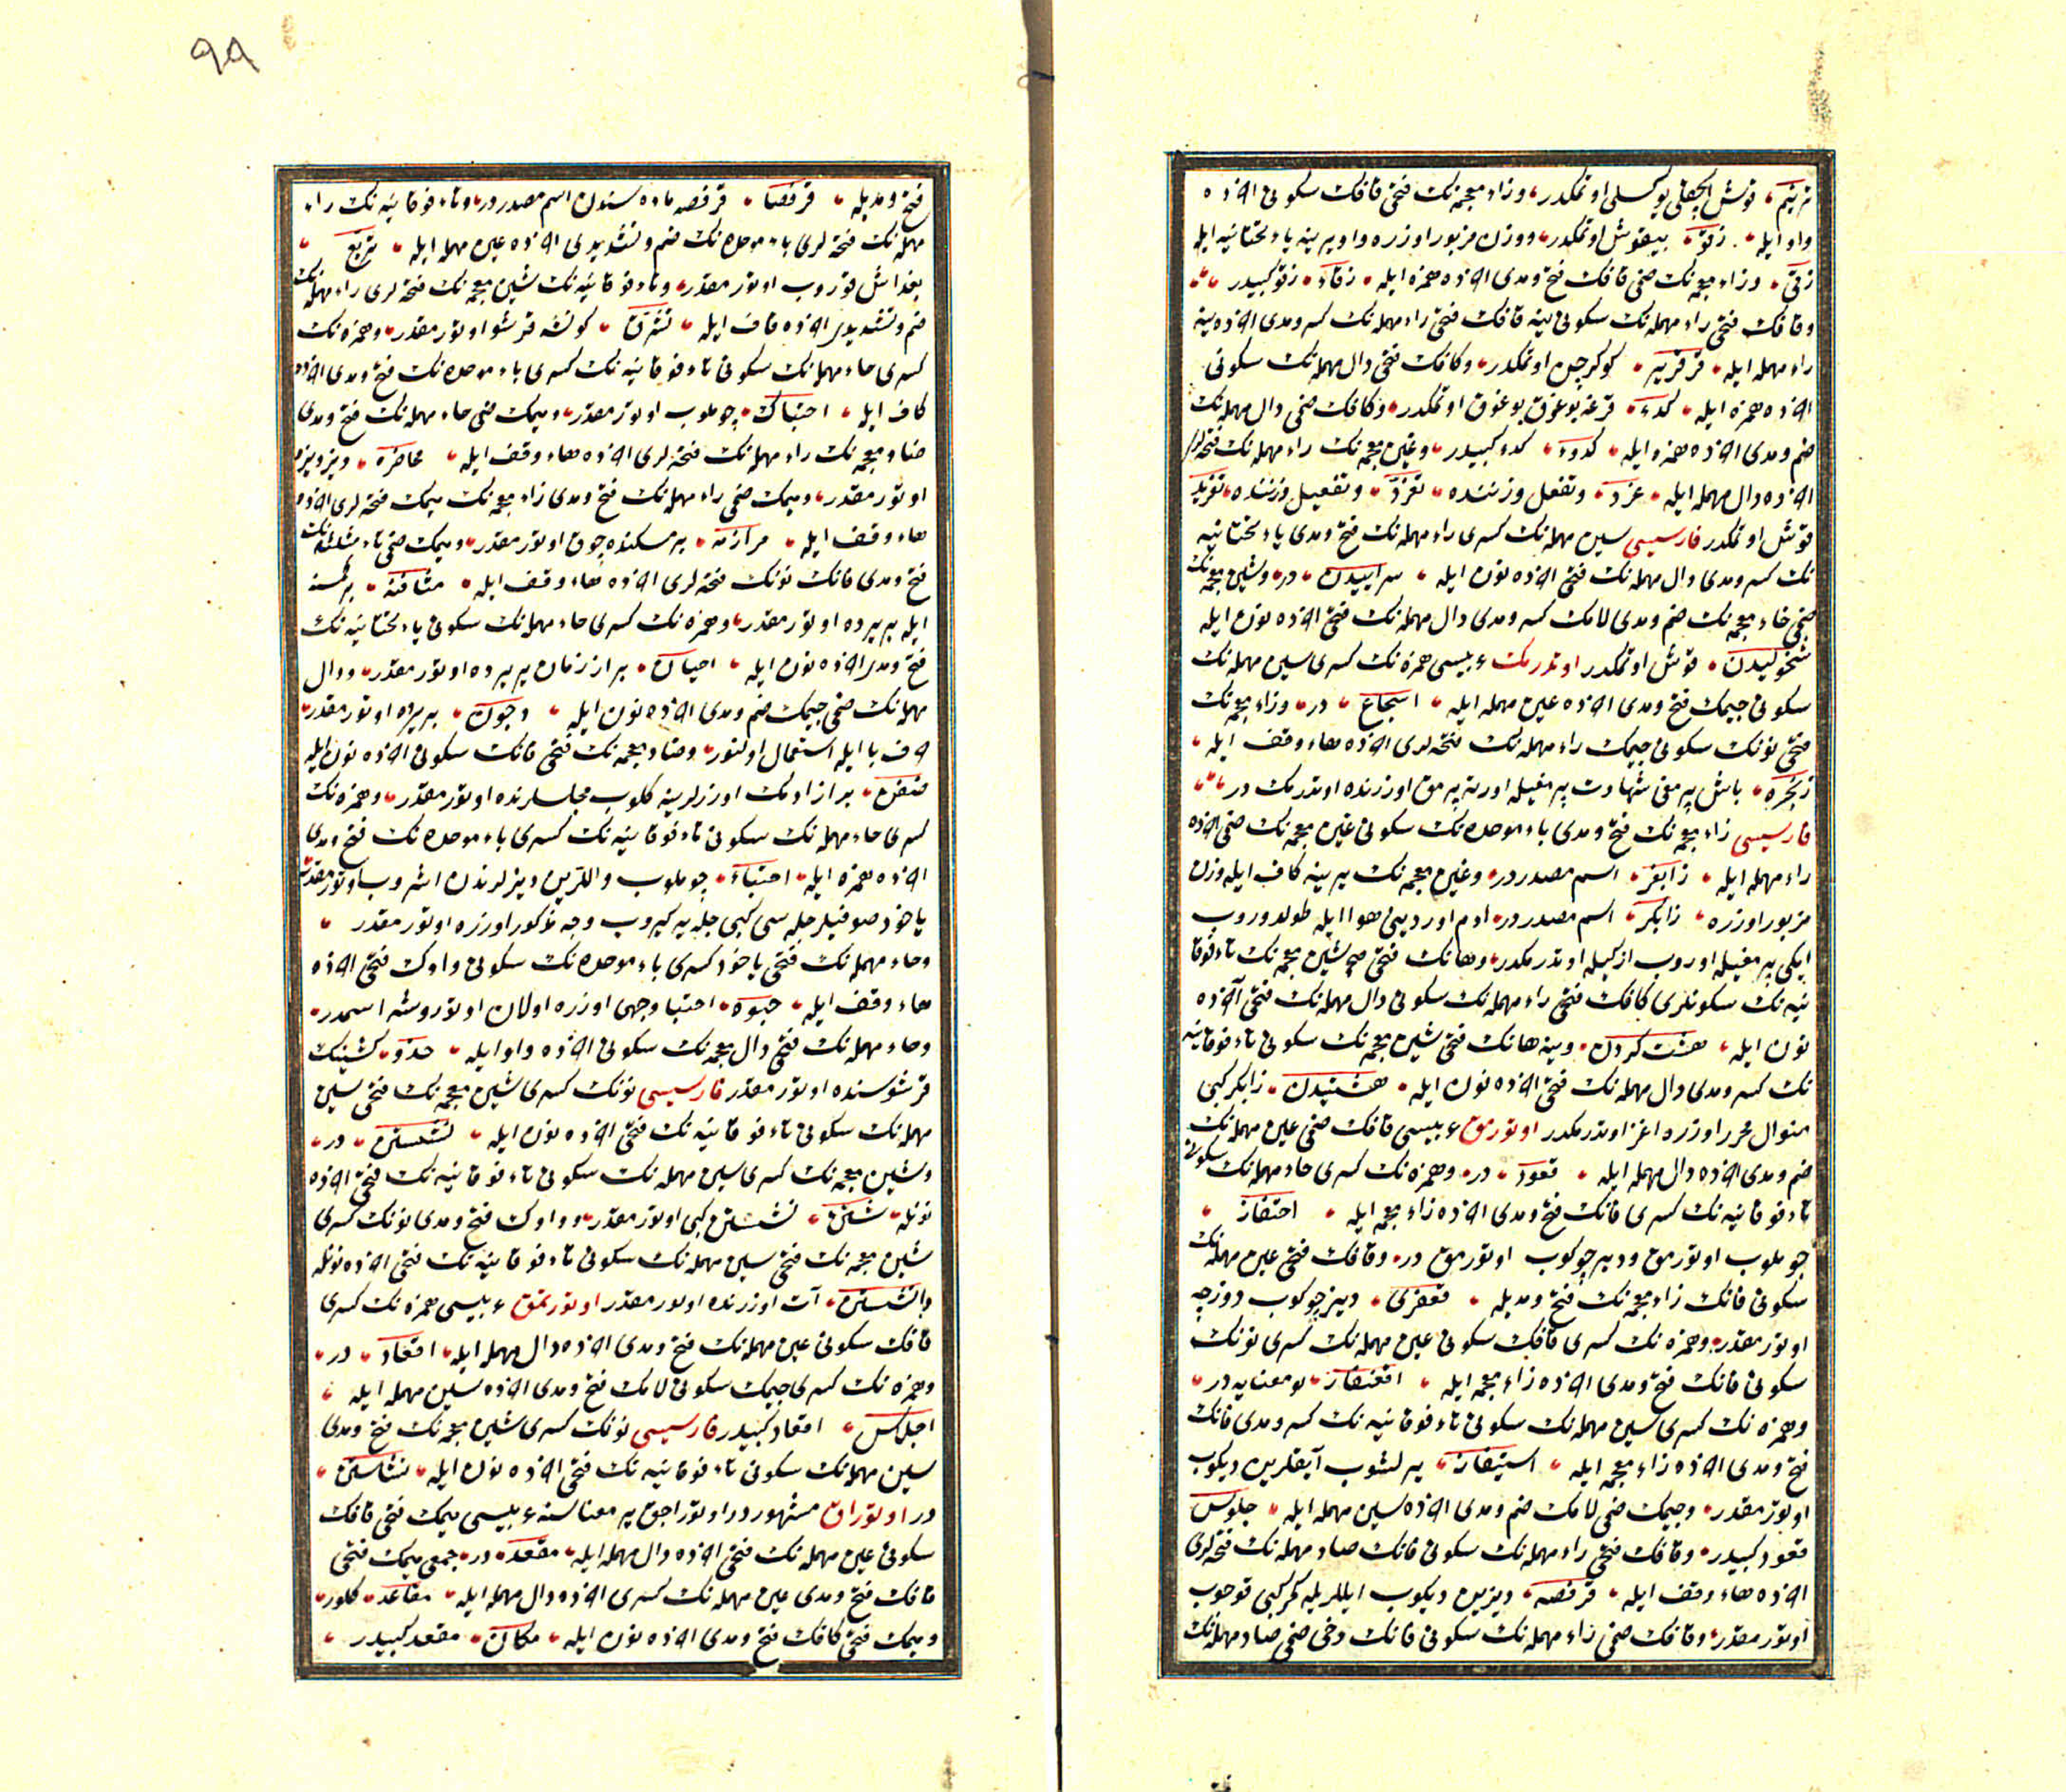 ترنیم قوش الچقلی یوکسلی اوتمکدر وزاء معجمه نک فتحی قافک سکونی آخرده
واو ایله زقو بیقوش اوتمکدر ووزن مزبور اوزره واو یرینه یاء تحتانیه ایله
زقی وزاء معجمه نک ضمی قافک فتح ومدی آخرده همزه ایله زقاء زقو کبیدر
وقافک فتحی راء مهمله نک سکونی ینه قافک فتحی راء مهمله نک کسر ومدی آخرده ینه
راء مهمله ایله قرقریر کوکرجین اوتمکدر وکافک فتحی دال مهمله نک سکونی
آخرده همزه ایله کدء قرغه بوغزق بوغزق اوتمکدر وکافک ضمی دال مهمله نک
ضم ومدی آخرده همزه ایله کدوء کدء کبیدر وغین معجمه نک راء مهمله نک فتحه لری
آخرده دال مهمله ایله غرد وتفعل وزننده تغرد وتفعیل وزننده تغرید
قوش اوتمکدر فارسیسی سین مهمله نک کسری راء مهمله نک فتح ومدی یاء تحتانیه
نک کسر ومدی دال مهمله نک فتحی آخرده نون ایله سراییدن در وشین معجمه نک
ضمی خاء معجمه نک ضم ومدی لامک کسر ومدی دال مهمله نک فتحی آخرده نون ایله
شخولیدن قوش اوتمکدر اوتدرمک عربیسی همزه نک کسری سین مهمله نک
سکونی جیمک فتح ومدی آخرده عین مهمله ایله اسجاع در وزاء معجمه نک
فتحی نونک سکونی جیمک راء مهمله نک فتحه لری آخرده هاء وقف ایله
زنجره باش پرمغی شهادت پرمغیله اورته پرمق اوزرنده اوتدرمک در
فارسیسی زاء معجمه نک فتح ومدی باء موحده نک سکونی غین معجمه نک ضمی آخرده
راء مهمله ایله زابغر اسم مصدردر وغین معجمه نک یرینه کاف ایله وزن
مزبور اوزره زابکر اسم مصدردر ادم اوردینی هوا ایله طولدوروب
ایکی پرمغیله اوروب ازکیله اوتدرمکدر وهانک فتحی شین معجمه نک تاء فوقا
نیه نک سکونلری کافک فتحی راء مهمله نک سکونی دال مهمله نک فتحی آخرده
نون ایله هشت کردن وینه هانک فتحی شین معجمه نک سکونی تاء فوقانیه
نک کسر ومدی دال مهمله نک فتحی آخرده نون ایله هشتیدن زابکر کبی
منوال محرر اوزره اغز اوتدرمکدر اوتورمق عربیسی قافک ضمی عین مهمله نک
ضم ومدی آخرده دال مهمله ایله قعود در وهمزه نک کسری حاء مهمله نک سکونی
تاء فوقانیه نک کسری فانک فتح ومدی آخرده زاء معجمه ایله احتفاز
چوملوب اوتورمق ودیز چوکوب اوتورمق در وقافک فتحی عین مهمله نک
سکونی فانک زاء معجمه نک فتح ومدیله قعفزی دیز چوکوب دوزجه
اوتور مقدر وهمزه نک کسری قافک سکونی عین مهمله نک کسری نونک
سکونی فانک فتح ومدی آخرده زاء معجمه ایله اقعنفاز بو معنایه در
وهمزه نک کسری سین مهمله نک سکونی تاء فوقانیه نک کسر ومدی فانک
فتح ومدی آخرده زاء معجمه ایله استیفاز یرلشوب آیقلرین دیکوب
اوتور مقدر وجیمک ضمی لامک ضم ومدی آخرده سین مهمله ایله جلوس
قعود کبیدر وقافک فتحی راء مهمله نک سکونی فانک صاد مهمله نک فتحه لری
آخرده هاء وقف ایله قرفصه دیزین دیکوب ایللریله کمر کبی قوجوب
اوتور مقدر وقافک ضمی راء مهمله نک سکونی فانک دخی ضمی صاد مهمله نک
۹۹
فتح ومدیله قرفصا قرفصه ماده سندن اسم مصدردر وتاء فوقانیه نک راء
مهمله نک فتحه لری باء موحده نک ضم وتشدیدی آخرده عین مهمله ایله تربع
بغداش قوروب اوتور مقدر وتاء فوقانیه نک شین معجمه نک فتحه لری راء مهمله نک
ضم وتشدیدی آخرده قاف ایله تشرق کونشه قرشو اوتور مقدر وهمزه نک
کسری حاء مهمله نک سکونی تاء فوقانیه نک کسری باء موحده نک فتح ومدی آخرده
کاف ایله احتباک چوملوب اوتور مقدر ومیمک ضمی حاء مهمله نک فتح ومدی
ضاد معجمه نک راء مهمله نک فتحه لری آخرده هاء وقف ایله محاضره دیز دیزه
اوتور مقدر ومیمک ضمی راء مهمله نک فتح ومدی زاء معجمه نک میمک فتحه لری آخرده
هاء وقف ایله مرازمه بر مسکنده چوق اوتور مقدر ومیمک ضمی ثاء مثلثه نک
فتح ومدی فانک نونک فتحه لری آخرده هاء وقف ایله مثافنه بر کمسه
ایله بر یرده اوتور مقدر وهمزه نک کسری حاء مهمله نک سکونی یاء تحتانیه نک
فتح ومدی آخرده نون ایله احیان بر از زمان بر یرده اوتور مقدر ودال
مهمله نک ضمی جیمک ضم ومدی آخرده نون ایله دجون بر یرده اوتور مقدر
حرف با ایله استعمال اولنور وضاد معجمه نک فتحی فانک سکونی آخرده نون ایله
ضفن بر از ادمک اوزرلرینه کلوب مجلسلرنده اوتور مقدر وهمزه نک
کسری حاء مهمله نک سکونی تاء فوقانیه نک کسری باء موحده نک فتح ومدی
آخرده همزه ایله احتباء چوملوب واللرین دیزلرندن اشروب اوتور مقدر
یاخود صوفیلر جله سی کبی جله یه کیروب وجه مذکور اوزره اوتور مقدر
وحاء مهمله نک فتحی یاخود کسری باء موحده نک سکونی واوک فتحی آخرده
هاء وقف ایله حبوه احتبا وجهی اوزره اولان اوتوروشه اسمدر
وحاء مهمله نک فتحی ذال معجمه نک سکونی آخرده واو ایله حذو کمسنک
قرشوسنده اوتور مقدر فارسیسی نونک کسری شین معجمه نک فتحی سین
مهمله نک سکونی تاء فوقانیه نک فتحی آخرده نون ایله نشستن در
وشین معجمه نک کسری سین مهمله نک سکونی تاء فوقانیه نک فتحی آخرده
نونله شستن نشستن کبی اوتور مقدر وواوک فتح ومدی نونک کسری
شین معجمه نک فتحی سین مهمله نک سکونی تاء فوقانیه نک فتحی آخرده نونله
وانشستن آت اوزرنده اوتور مقدر اوتورتمق عربیسی همزه نک کسری
قافک سکونی عین مهمله نک فتح ومدی آخرده دال مهمله ایله اقعاد در
وهمزه نک کسری جیمک سکونی لامک فتح ومدی آخرده سین مهمله ایله
اجلاس اقعاد کبیدر فارسیسی نونک کسری شین معجمه نک فتح ومدی
سین مهمله نک سکونی تاء فوقانیه نک فتحی آخرده نون ایله نشاستن
در اوتوراق مشهوردر اوتوراجق یر معناسنه عربیسی میمک فتحی قافک
سکونی عین مهمله نک فتحی آخرده دال مهمله ایله مقعد در جمعی میمک فتحی
قافک فتح ومدی عین مهمله نک کسری آخرده دال مهمله ایله مقاعد کلور
ومیمک فتحی کافک فتح ومدی آخرده نون ایله مکان مقعد کبیدر